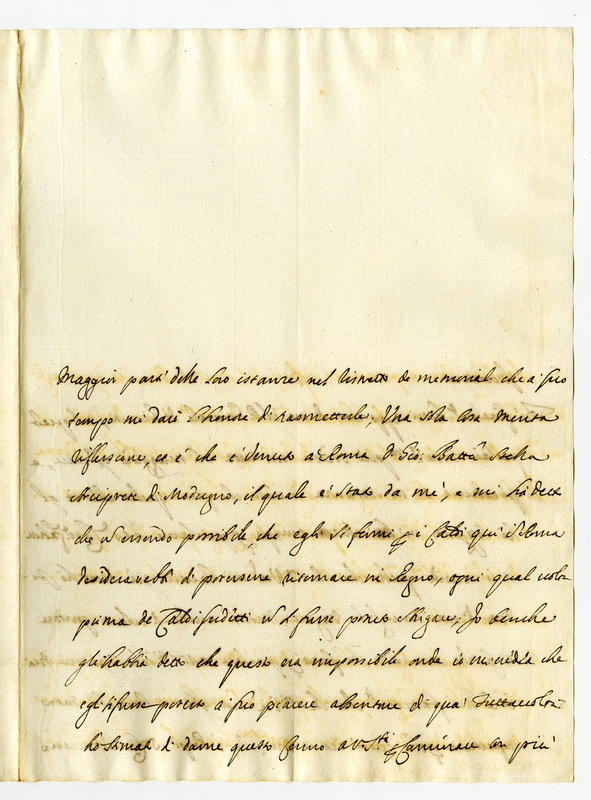 Maggior parte delle loro istanze nel ristretto de memoriali che a suo
tempo mi darò l'honore di trasmetterle; Una sola cosa merita
riflessione, et è che è venuto a Roma D. Gio: Batta Stella
Arciprete di Modugno, il quale è stato da mè, e mi hà detto
che n essendo possibile, che egli si fermi p i Caldi quì in Roma
desiderarebbe di potersene ritornare in Regno, ogni qual volta
prima de Caldi sudetti n si fusse potuto; Io benche
gli habbia detto che questo era impossibile onde io che
egli si fusse potuto a suo piacere absentare di quà Tuttavolta
hò stimato di darne questo Cenno a V. Sria p Caminare con più